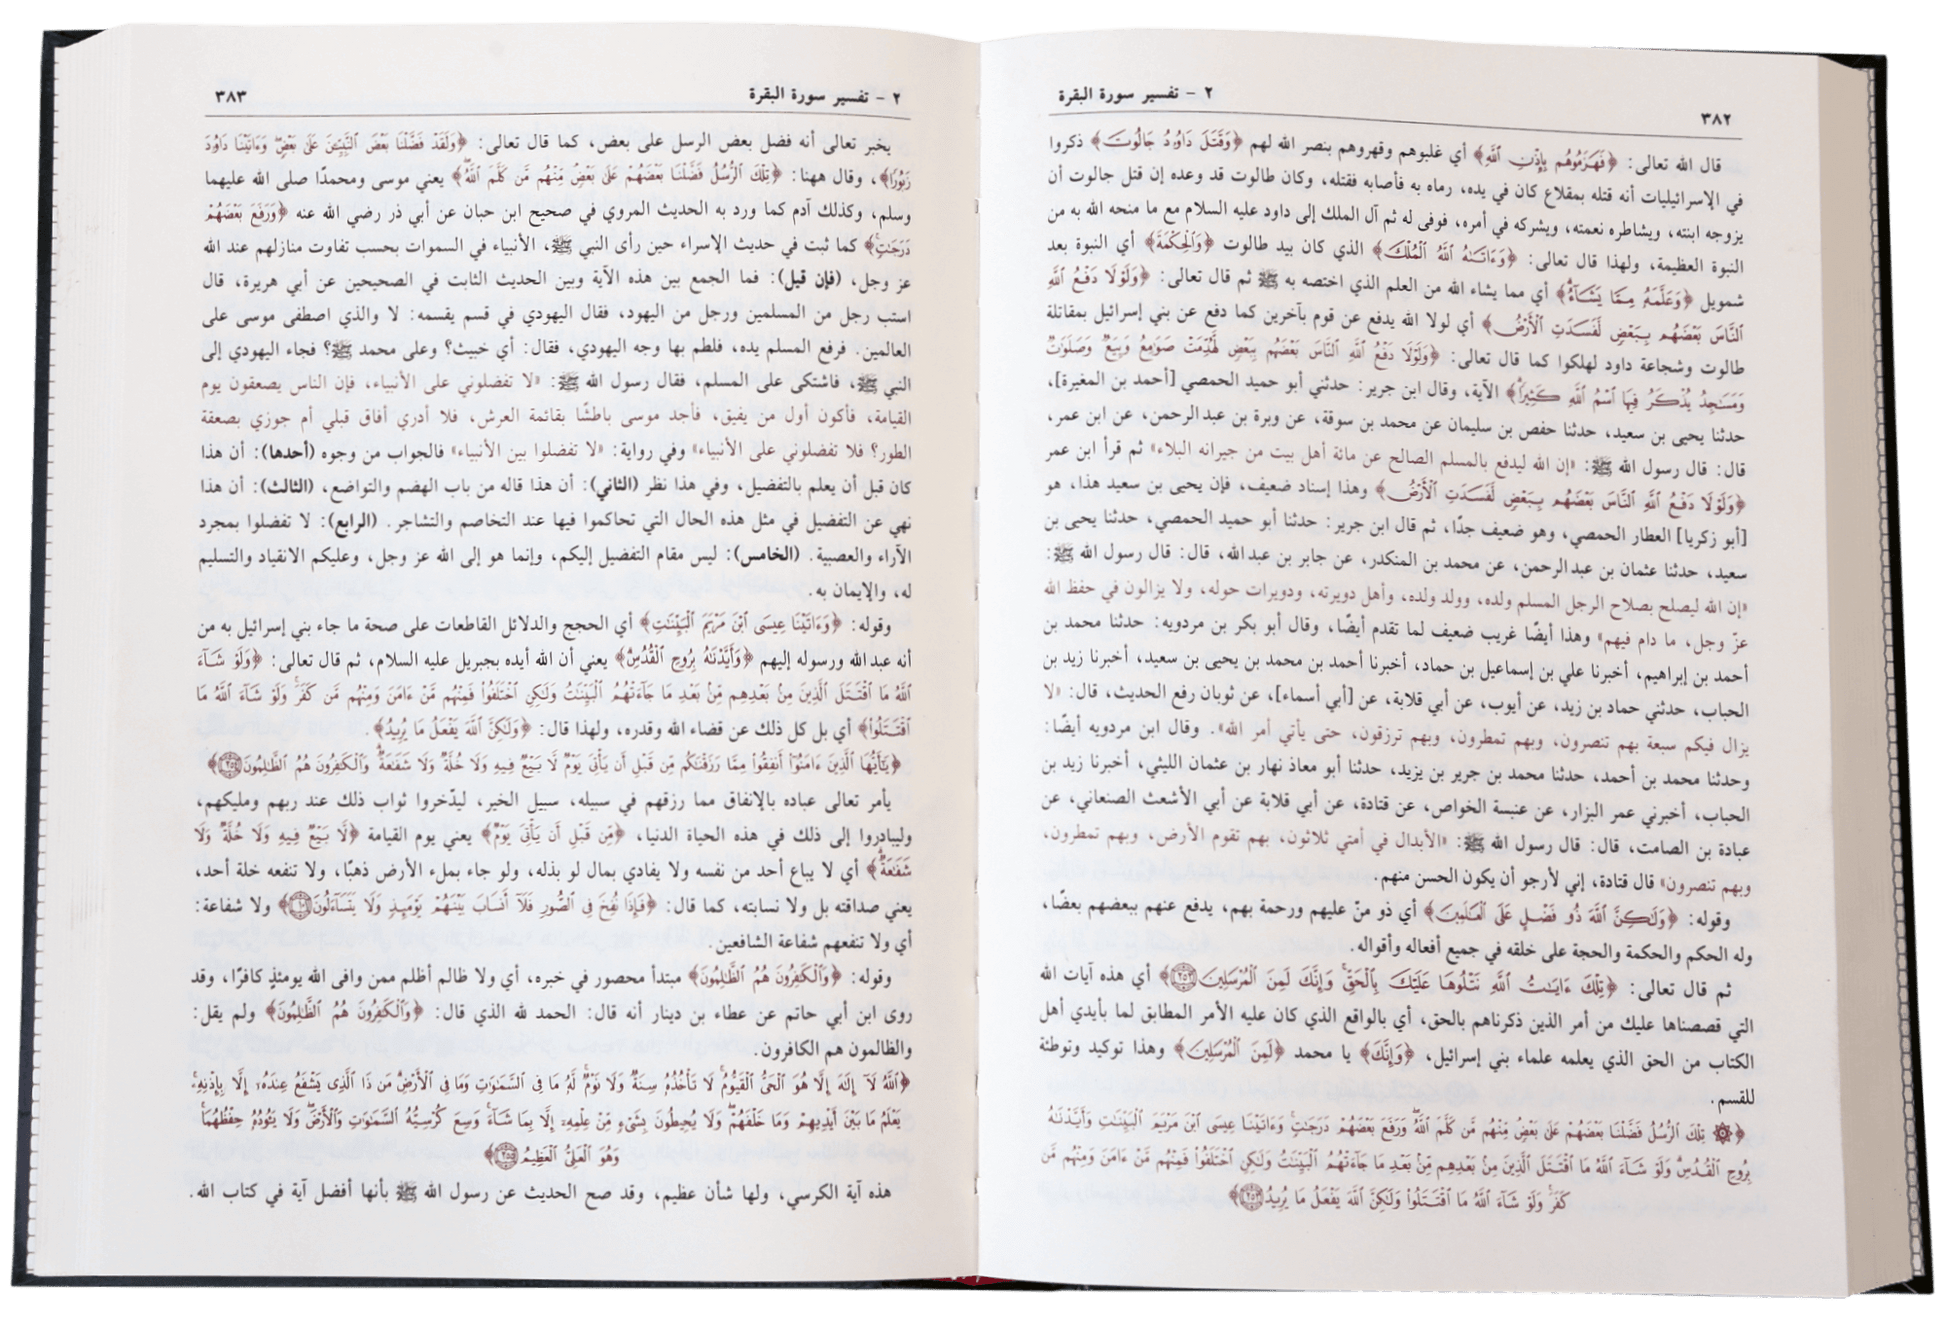 ٢ - تفسير سورة البقرة
٣٨٢
قال الله تعالى: ﴿فَهَزَمُوهُم بِإِذْنِ ٱللَّهِ﴾ أي غلبوهم وقهروهم بنصر الله لهم ﴿وَقَتَلَ دَاوُۥدُ جَالُوتَ﴾ ذكروا
في الإسرائيليات أنه قتله بمقلاع كان في يده، رماه به فأصابه فقتله، وكان طالوت قد وعده إن قتل جالوت أن
يزوجه ابنته، ويشاطره نعمته، ويشركه في أمره، فوفى له ثم آل الملك إلى داود عليه السلام مع ما منحه الله به من
النبوة العظيمة، ولهذا قال تعالى: ﴿وَءَاتَىٰهُ ٱللَّهُ ٱلْمُلْكَ﴾ الذي كان بيد طالوت ﴿وَٱلْحِكْمَةَ﴾ أي النبوة بعد
شمويل ﴿وَعَلَّمَهُۥ مِمَّا يَشَآءُ﴾ أي مما يشاء الله من العلم الذي اختصه به ﷺ ثم قال تعالى: ﴿وَلَوْلَا دَفْعُ ٱللَّهِ
ٱلنَّاسَ بَعْضَهُم بِبَعْضٍ لَّفَسَدَتِ ٱلْأَرْضُ﴾ أي لولا الله يدفع عن قوم بآخرين كما دفع عن بني إسرائيل بمقاتلة
طالوت وشجاعة داود لهلكوا كما قال تعالى: ﴿وَلَوْلَا دَفْعُ ٱللَّهِ ٱلنَّاسَ بَعْضَهُم بِبَعْضٍ لَّهُدِّمَتْ صَوَٰمِعُ وَبِيَعٌ وَصَلَوَٰتٌ
وَمَسَٰجِدُ يُذْكَرُ فِيهَا ٱسْمُ ٱللَّهِ كَثِيرًا﴾ الآية، وقال ابن جرير: حدثني أبو حميد الحمصي [أحمد بن المغيرة]،
حدثنا يحيى بن سعيد، حدثنا حفص بن سليمان عن محمد بن سوقة، عن وبرة بن عبد الرحمن، عن ابن عمر،
قال: قال رسول الله ﷺ: «إن الله ليدفع بالمسلم الصالح عن مائة أهل بيت من جيرانه البلاء» ثم قرأ ابن عمر
﴿وَلَوْلَا دَفْعُ ٱللَّهِ ٱلنَّاسَ بَعْضَهُم بِبَعْضٍ لَّفَسَدَتِ ٱلْأَرْضُ﴾ وهذا إسناد ضعيف، فإن يحيى بن سعيد هذا، هو
[أبو زكريا] العطار الحمصي، وهو ضعيف جدًا، ثم قال ابن جرير: حدثنا أبو حميد الحمصي، حدثنا يحيى بن
سعيد، حدثنا عثمان بن عبد الرحمن، عن محمد بن المنكدر، عن جابر بن عبد الله، قال: قال رسول الله ﷺ:
«إن الله ليصلح بصلاح الرجل المسلم ولده، وولد ولده، وأهل دويرته، ودويرات حوله، ولا يزالون في حفظ الله
عزّ وجل، ما دام فيهم» وهذا أيضًا غريب ضعيف لما تقدم أيضًا، وقال أبو بكر بن مردويه: حدثنا محمد بن
أحمد بن إبراهيم، أخبرنا علي بن إسماعيل بن حماد، أخبرنا أحمد بن محمد بن يحيى بن سعيد، أخبرنا زيد بن
الحباب، حدثني حماد بن زيد، عن أيوب، عن أبي قلابة، عن [أبي أسماء]، عن ثوبان رفع الحديث، قال: «لا
يزال فيكم سبعة بهم تنصرون، وبهم تمطرون، وبهم ترزقون، حتى يأتي أمر الله». وقال ابن مردويه أيضًا:
وحدثنا محمد بن أحمد، حدثنا محمد بن جرير بن يزيد، حدثنا أبو معاذ نهار بن عثمان الليثي، أخبرنا زيد بن
الحباب، أخبرني عمر البزار، عن عنبسة الخواص، عن قتادة، عن أبي قلابة عن أبي الأشعث الصنعاني، عن
عبادة بن الصامت، قال: قال رسول الله ﷺ: «الأبدال في أمتي ثلاثون، بهم تقوم الأرض، وبهم تمطرون،
وبهم تنصرون» قال قتادة، إني لأرجو أن يكون الحسن منهم.
وقوله: ﴿وَلَٰكِنَّ ٱللَّهَ ذُو فَضْلٍ عَلَى ٱلْعَٰلَمِينَ﴾ أي ذو منّ عليهم ورحمة بهم، يدفع عنهم ببعضهم بعضًا،
وله الحكم والحكمة والحجة على خلقه في جميع أفعاله وأقواله.
ثم قال تعالى: ﴿تِلْكَ ءَايَٰتُ ٱللَّهِ نَتْلُوهَا عَلَيْكَ بِٱلْحَقِّ وَإِنَّكَ لَمِنَ ٱلْمُرْسَلِينَ ٢٥٢﴾ أي هذه آيات الله
التي قصصناها عليك من أمر الذين ذكرناهم بالحق، أي بالواقع الذي كان عليه الأمر المطابق لما بأيدي أهل
الكتاب من الحق الذي يعلمه علماء بني إسرائيل، ﴿وَإِنَّكَ﴾ يا محمد ﴿لَمِنَ ٱلْمُرْسَلِينَ﴾ وهذا توكيد وتوطئة
للقسم.
﴿۞ تِلْكَ ٱلرُّسُلُ فَضَّلْنَا بَعْضَهُمْ عَلَىٰ بَعْضٍ مِّنْهُم مَّن كَلَّمَ ٱللَّهُ وَرَفَعَ بَعْضَهُمْ دَرَجَٰتٍ وَءَاتَيْنَا عِيسَى ٱبْنَ مَرْيَمَ ٱلْبَيِّنَٰتِ وَأَيَّدْنَٰهُ
بِرُوحِ ٱلْقُدُسِ وَلَوْ شَآءَ ٱللَّهُ مَا ٱقْتَتَلَ ٱلَّذِينَ مِنۢ بَعْدِهِم مِّنۢ بَعْدِ مَا جَآءَتْهُمُ ٱلْبَيِّنَٰتُ وَلَٰكِنِ ٱخْتَلَفُوا۟ فَمِنْهُم مَّنْ ءَامَنَ وَمِنْهُم مَّن
كَفَرَ وَلَوْ شَآءَ ٱللَّهُ مَا ٱقْتَتَلُوا۟ وَلَٰكِنَّ ٱللَّهَ يَفْعَلُ مَا يُرِيدُ ٢٥٣﴾
٢ - تفسير سورة البقرة
٣٨٣
يخبر تعالى أنه فضل بعض الرسل على بعض، كما قال تعالى: ﴿وَلَقَدْ فَضَّلْنَا بَعْضَ ٱلنَّبِيِّۦنَ عَلَىٰ بَعْضٍ وَءَاتَيْنَا دَاوُۥدَ
زَبُورًا﴾، وقال ههنا: ﴿تِلْكَ ٱلرُّسُلُ فَضَّلْنَا بَعْضَهُمْ عَلَىٰ بَعْضٍ مِّنْهُم مَّن كَلَّمَ ٱللَّهُ﴾ يعني موسى ومحمدًا صلى الله عليهما
وسلم، وكذلك آدم كما ورد به الحديث المروي في صحيح ابن حبان عن أبي ذر رضي الله عنه ﴿وَرَفَعَ بَعْضَهُمْ
دَرَجَٰتٍ﴾ كما ثبت في حديث الإسراء حين رأى النبي ﷺ، الأنبياء في السموات بحسب تفاوت منازلهم عند الله
عز وجل، (فإن قيل): فما الجمع بين هذه الآية وبين الحديث الثابت في الصحيحين عن أبي هريرة، قال
استب رجل من المسلمين ورجل من اليهود، فقال اليهودي في قسم يقسمه: لا والذي اصطفى موسى على
العالمين. فرفع المسلم يده، فلطم بها وجه اليهودي، فقال: أي خبيث؟ وعلى محمد ﷺ؟ فجاء اليهودي إلى
النبي ﷺ، فاشتكى على المسلم، فقال رسول الله ﷺ: «لا تفضلوني على الأنبياء، فإن الناس يصعقون يوم
القيامة، فأكون أول من يفيق، فأجد موسى باطشًا بقائمة العرش، فلا أدري أفاق قبلي أم جوزي بصعقة
الطور؟ فلا تفضلوني على الأنبياء» وفي رواية: «لا تفضلوا بين الأنبياء» فالجواب من وجوه (أحدها): أن هذا
كان قبل أن يعلم بالتفضيل، وفي هذا نظر (الثاني): أن هذا قاله من باب الهضم والتواضع، (الثالث): أن هذا
نهي عن التفضيل في مثل هذه الحال التي تحاكموا فيها عند التخاصم والتشاجر. (الرابع): لا تفضلوا بمجرد
الآراء والعصبية. (الخامس): ليس مقام التفضيل إليكم، وإنما هو إلى الله عز وجل، وعليكم الانقياد والتسليم
له، والإيمان به.
وقوله: ﴿وَءَاتَيْنَا عِيسَى ٱبْنَ مَرْيَمَ ٱلْبَيِّنَٰتِ﴾ أي الحجج والدلائل القاطعات على صحة ما جاء بني إسرائيل به من
أنه عبد الله ورسوله إليهم ﴿وَأَيَّدْنَٰهُ بِرُوحِ ٱلْقُدُسِ﴾ يعني أن الله أيده بجبريل عليه السلام، ثم قال تعالى: ﴿وَلَوْ شَآءَ
ٱللَّهُ مَا ٱقْتَتَلَ ٱلَّذِينَ مِنۢ بَعْدِهِم مِّنۢ بَعْدِ مَا جَآءَتْهُمُ ٱلْبَيِّنَٰتُ وَلَٰكِنِ ٱخْتَلَفُوا۟ فَمِنْهُم مَّنْ ءَامَنَ وَمِنْهُم مَّن كَفَرَ وَلَوْ شَآءَ ٱللَّهُ مَا
ٱقْتَتَلُوا۟﴾ أي بل كل ذلك عن قضاء الله وقدره، ولهذا قال: ﴿وَلَٰكِنَّ ٱللَّهَ يَفْعَلُ مَا يُرِيدُ﴾.
﴿يَٰٓأَيُّهَا ٱلَّذِينَ ءَامَنُوٓا۟ أَنفِقُوا۟ مِمَّا رَزَقْنَٰكُم مِّن قَبْلِ أَن يَأْتِىَ يَوْمٌ لَّا بَيْعٌ فِيهِ وَلَا خُلَّةٌ وَلَا شَفَٰعَةٌ وَٱلْكَٰفِرُونَ هُمُ ٱلظَّٰلِمُونَ ٢٥٤﴾
يأمر تعالى عباده بالإنفاق مما رزقهم في سبيله، سبيل الخير، ليدّخروا ثواب ذلك عند ربهم ومليكهم،
وليبادروا إلى ذلك في هذه الحياة الدنيا، ﴿مِّن قَبْلِ أَن يَأْتِىَ يَوْمٌ﴾ يعني يوم القيامة ﴿لَّا بَيْعٌ فِيهِ وَلَا خُلَّةٌ وَلَا
شَفَٰعَةٌ﴾ أي لا يباع أحد من نفسه ولا يفادي بمال لو بذله، ولو جاء بملء الأرض ذهبًا، ولا تنفعه خلة أحد،
يعني صداقته بل ولا نسابته، كما قال: ﴿فَإِذَا نُفِخَ فِى ٱلصُّورِ فَلَآ أَنسَابَ بَيْنَهُمْ يَوْمَئِذٍ وَلَا يَتَسَآءَلُونَ ١٠١﴾ ولا شفاعة:
أي ولا تنفعهم شفاعة الشافعين.
وقوله: ﴿وَٱلْكَٰفِرُونَ هُمُ ٱلظَّٰلِمُونَ﴾ مبتدأ محصور في خبره، أي ولا ظالم أظلم ممن وافى الله يومئذٍ كافرًا، وقد
روى ابن أبي حاتم عن عطاء بن دينار أنه قال: الحمد لله الذي قال: ﴿وَٱلْكَٰفِرُونَ هُمُ ٱلظَّٰلِمُونَ﴾ ولم يقل:
والظالمون هم الكافرون.
﴿ٱللَّهُ لَآ إِلَٰهَ إِلَّا هُوَ ٱلْحَىُّ ٱلْقَيُّومُ لَا تَأْخُذُهُۥ سِنَةٌ وَلَا نَوْمٌ لَّهُۥ مَا فِى ٱلسَّمَٰوَٰتِ وَمَا فِى ٱلْأَرْضِ مَن ذَا ٱلَّذِى يَشْفَعُ عِندَهُۥٓ إِلَّا بِإِذْنِهِۦ
يَعْلَمُ مَا بَيْنَ أَيْدِيهِمْ وَمَا خَلْفَهُمْ وَلَا يُحِيطُونَ بِشَىْءٍ مِّنْ عِلْمِهِۦٓ إِلَّا بِمَا شَآءَ وَسِعَ كُرْسِيُّهُ ٱلسَّمَٰوَٰتِ وَٱلْأَرْضَ وَلَا يَـُٔودُهُۥ حِفْظُهُمَا
وَهُوَ ٱلْعَلِىُّ ٱلْعَظِيمُ ٢٥٥﴾
هذه آية الكرسي، ولها شأن عظيم، وقد صح الحديث عن رسول الله ﷺ بأنها أفضل آية في كتاب الله.